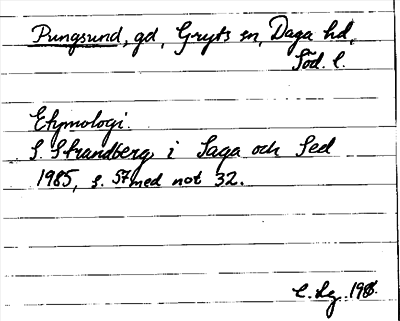 Pungsund, gd, Gryts sn, Daga hd,
Söd. l.
Etymologi.
S. Strandberg i Saga och Sed
1985, s. 57 med not 32.